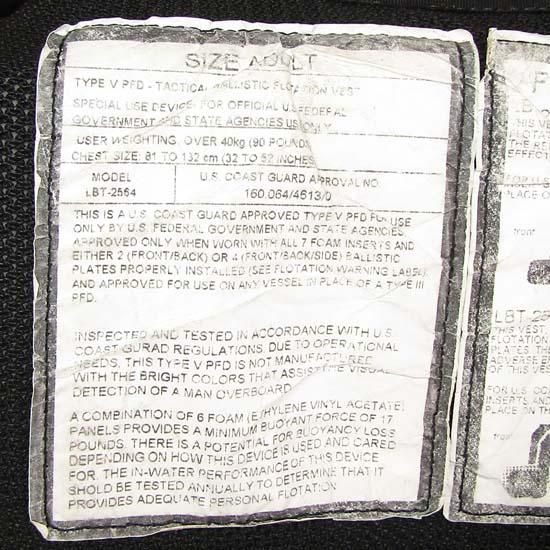 SIZE ADULT
TYPE V PFD - TACTICAL BALLISTIC FLOTATION VEST
SPECIAL USE DEVICE: FOR OFFICIAL U.S FEDERAL
GOVERNMENT AND STATE AGENCIES USE ONLY
USER WEIGHTING, OVER 40kg (90 POUNDS)
CHEST SIZE: 81 TO 132 cm (32 TO 52 INCHES
MODEL
LBT-2564
U.S. COAST GUARD APPROVAL NO.
160.064/4613/0
THIS IS A U.S. COAST GUARD APPROVED TYPE V PFD FOR USE
ONLY BY U.S. FEDERAL GOVERNMENT AND STATE AGENCIES
APPROVED ONLY WHEN WORN WITH ALL 7 FOAM INSERTS AND
EITHER 2 (FRONT/BACK) OR 4 (FRONT/BACK/SIDE) BALLISTIC
PLATES PROPERLY INSTALLED (SEE FLOTATION WARNING LABEL)
AND APPROVED FOR USE ON ANY VESSEL IN PLACE OF A TYPE III
PFD.
INSPECTED AND TESTED IN ACCORDANCE WITH U.S.
COAST GURAD REGULATIONS. DUE TO OPERATIONAL
NEEDS, THIS TYPE V PFD IS NOT MANUFACTURED
WITH THE BRIGHT COLORS THAT ASSIST THE VISUAL
DETECTION OF A MAN OVERBOARD.
A COMBINATION OF 6 FOAM (ETHYLENE VINYL ACETATE)
PANELS PROVIDES A MINIMUM BUOYANT FORCE OF 17
POUNDS. THERE IS A POTENTIAL FOR BUOYANCY LOSS
DEPENDING ON HOW THIS DEVICE IS USED AND CARED
FOR. THE IN-WATER PERFORMANCE OF THIS DEVICE
SHOULD BE TESTED ANNUALLY TO DETERMINE THAT IT
PROVIDES ADEQUATE PERSONAL FLOTATION
THIS VE
FLOTAT
EFFECT
PLACE O
front
LBT-25
THIS VEST
FLOTATION
PLATES
FOR U.S. CO
INSERTS AND
PLACE ON TH
front